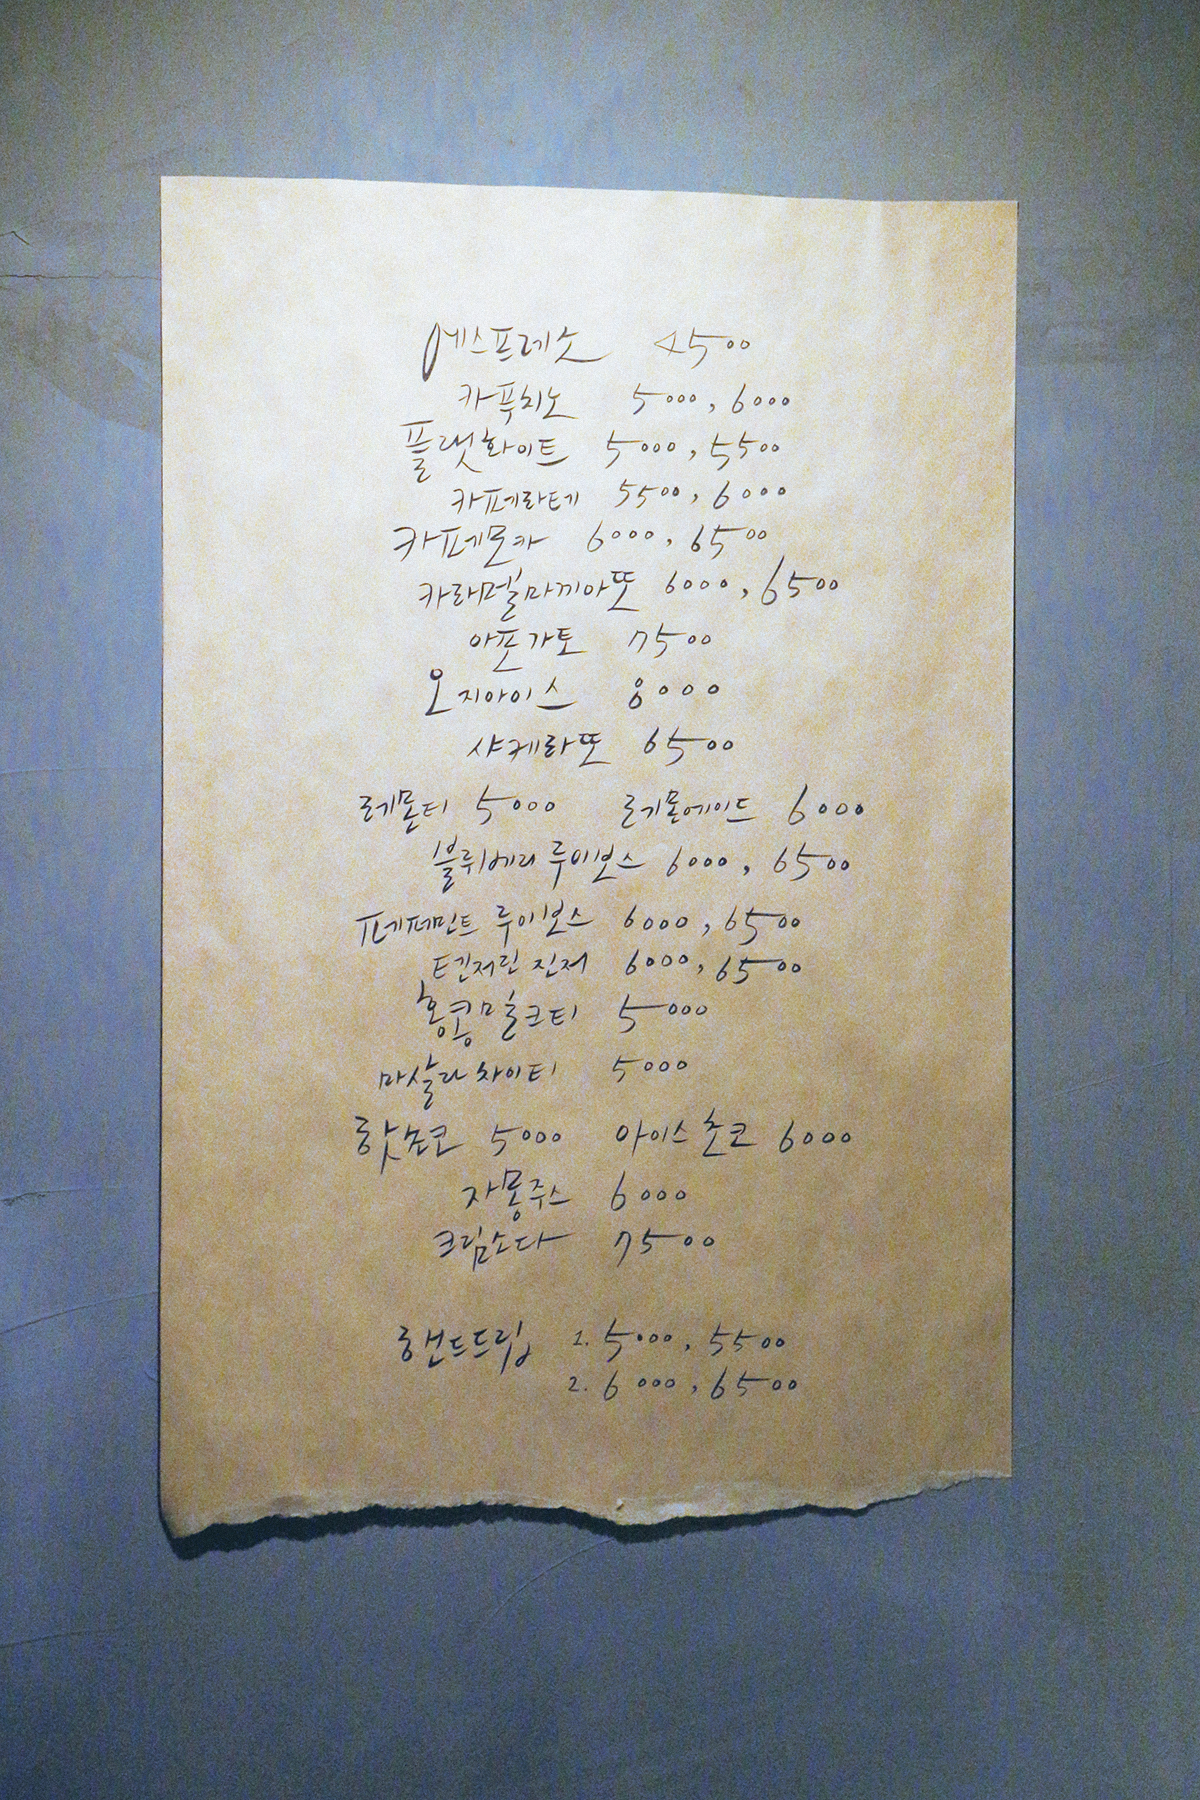 에스프레소 4500
카푸치노 5000, 6000
플랫화이트 5000, 5500
카페라테 5500, 6000
카페모카 6000, 6500
카라멜마끼아또 6000, 6500
아포가토 7500
오지아이스 8000
샤케라또 6500
레몬티 5000 레몬에이드 6000
블루베리 루이보스 6000, 6500
페퍼민트 루이보스 6000, 6500
텐저린 진저 6000, 6500
홍콩밀크티 5000
마살라 차이티 5000
핫쵸코 5000 아이스쵸코 6000
자몽주스 6000
크림소다 7500
핸드드립 1. 5000, 5500
2. 6000, 6500